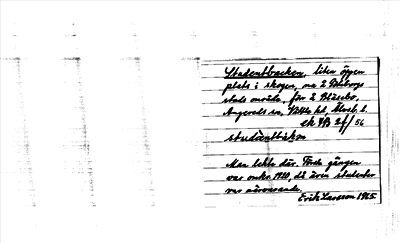 Studentbacken, liten öppen
plats i skogen, no Göteborgs
stads område, för
Angereds sn, Vättle hd, Älvsb. l.
ek
studäntbakən
Man lekte där. Första gången
var omkr. 1920, då även studenter
var närvarande.
Erik Larsson 1965